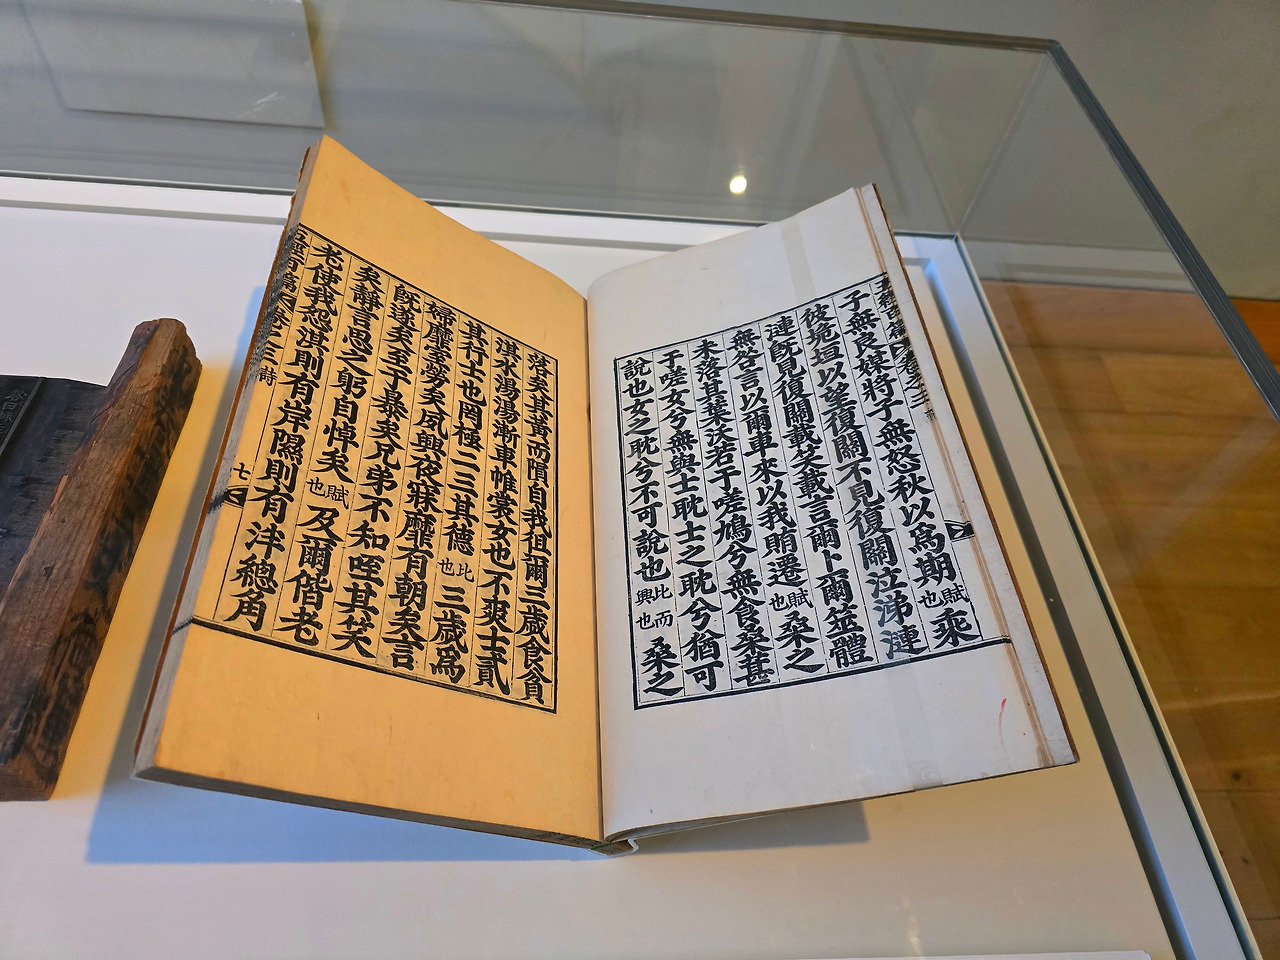 子無良媒將子無怒秋以爲期賦也乘
彼垝垣以望復關不見復關泣涕漣
漣旣見復關載笑載言爾卜爾筮體
無咎言以爾車來以我賄遷賦也桑之
未落其葉沃若于嗟鳩兮無食桑葚
于嗟女兮無與士耽士之耽兮猶可
說也女之耽兮不可說也比而興也桑之
落矣其黃而隕自我徂爾三歲食貧
淇水湯湯漸車帷裳女也不爽士貳
其行士也罔極二三其德比也三歲爲
婦靡室勞矣夙興夜寐靡有朝矣言
旣遂矣至于暴矣兄弟不知咥其笑
矣靜言思之躬自悼矣賦也及爾偕老
老使我怨淇則有岸隰則有泮總角
五經百篇卷之三 詩 七